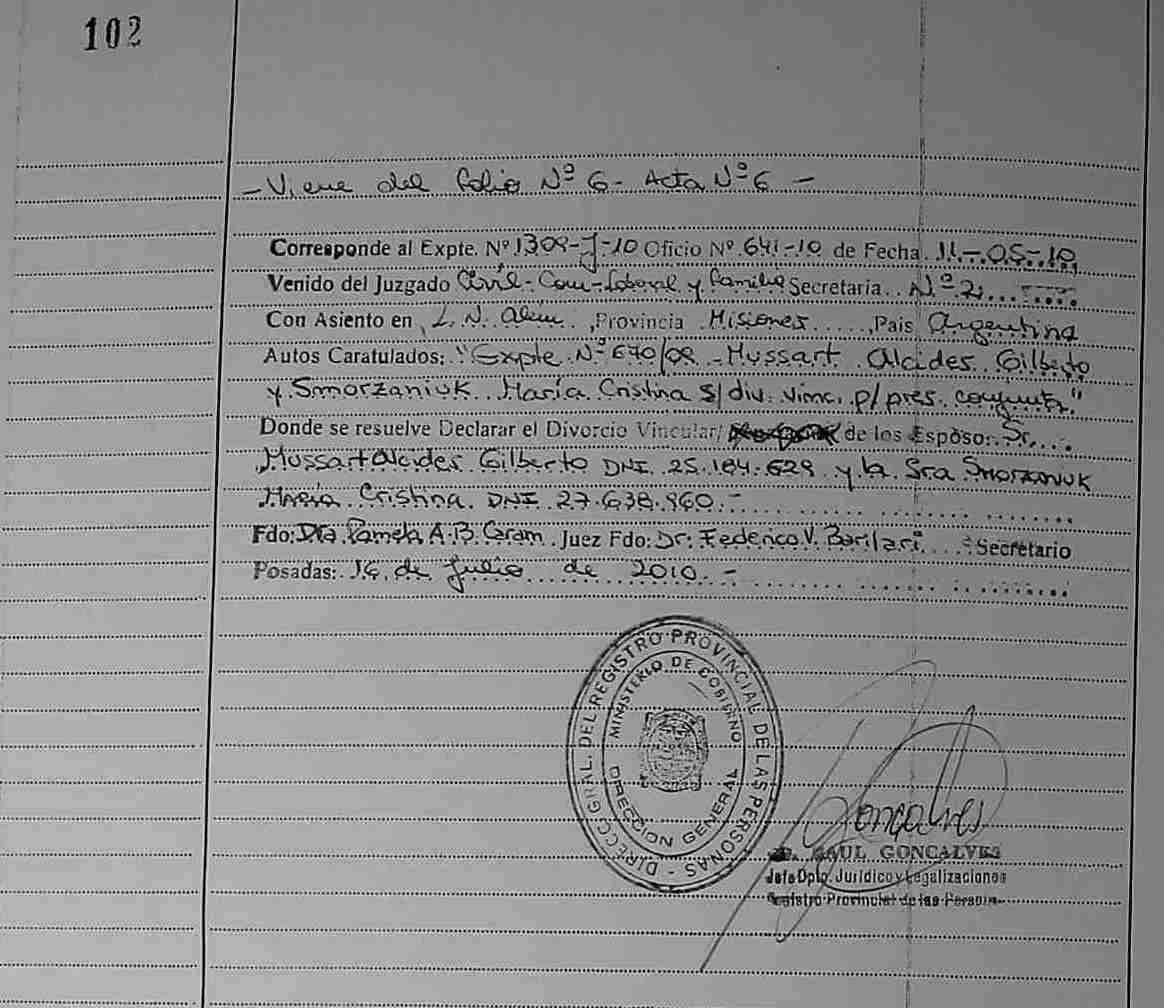 102
- Viene del folio Nº 6 - Acta Nº 6 -
Corresponde al Expte. Nº 1309-J-10 Oficio Nº 641-10 de Fecha 11-05-10
Venido del Juzgado Civil-Com-Laboral y Familia Secretaria Nº 2
Con Asiento en L. N. Alem, Provincia Misiones, Pais Argentina
Autos Caratulados: "Expte Nº 670/08 - Mussart Alcides Gilberto
y Smorzaniuk María Cristina S/ div. vinc. p/ pres. conjunta"
Donde se resuelve Declarar el Divorcio Vincular/ de los Esposo: Sr.
Mussart Alcides Gilberto DNI 25.184.629 y la Sra Smorzaniuk
María Cristina DNI 27.638.960.-
Fdo: Dra Pamela A. B. Caram Juez Fdo: Dr: Federico V. Barilari Secretario
Posadas: 16 de Julio de 2010.-
DIRECC. GRAL. DEL REGISTRO PROVINCIAL DE LAS PERSONAS -
MINISTERIO DE GOBIERNO
DIRECCION GENERAL
Goncalves
RAUL GONCALVES
Jefe Dpto. Jurídico y Legalizaciones
Registro Provincial de las Personas